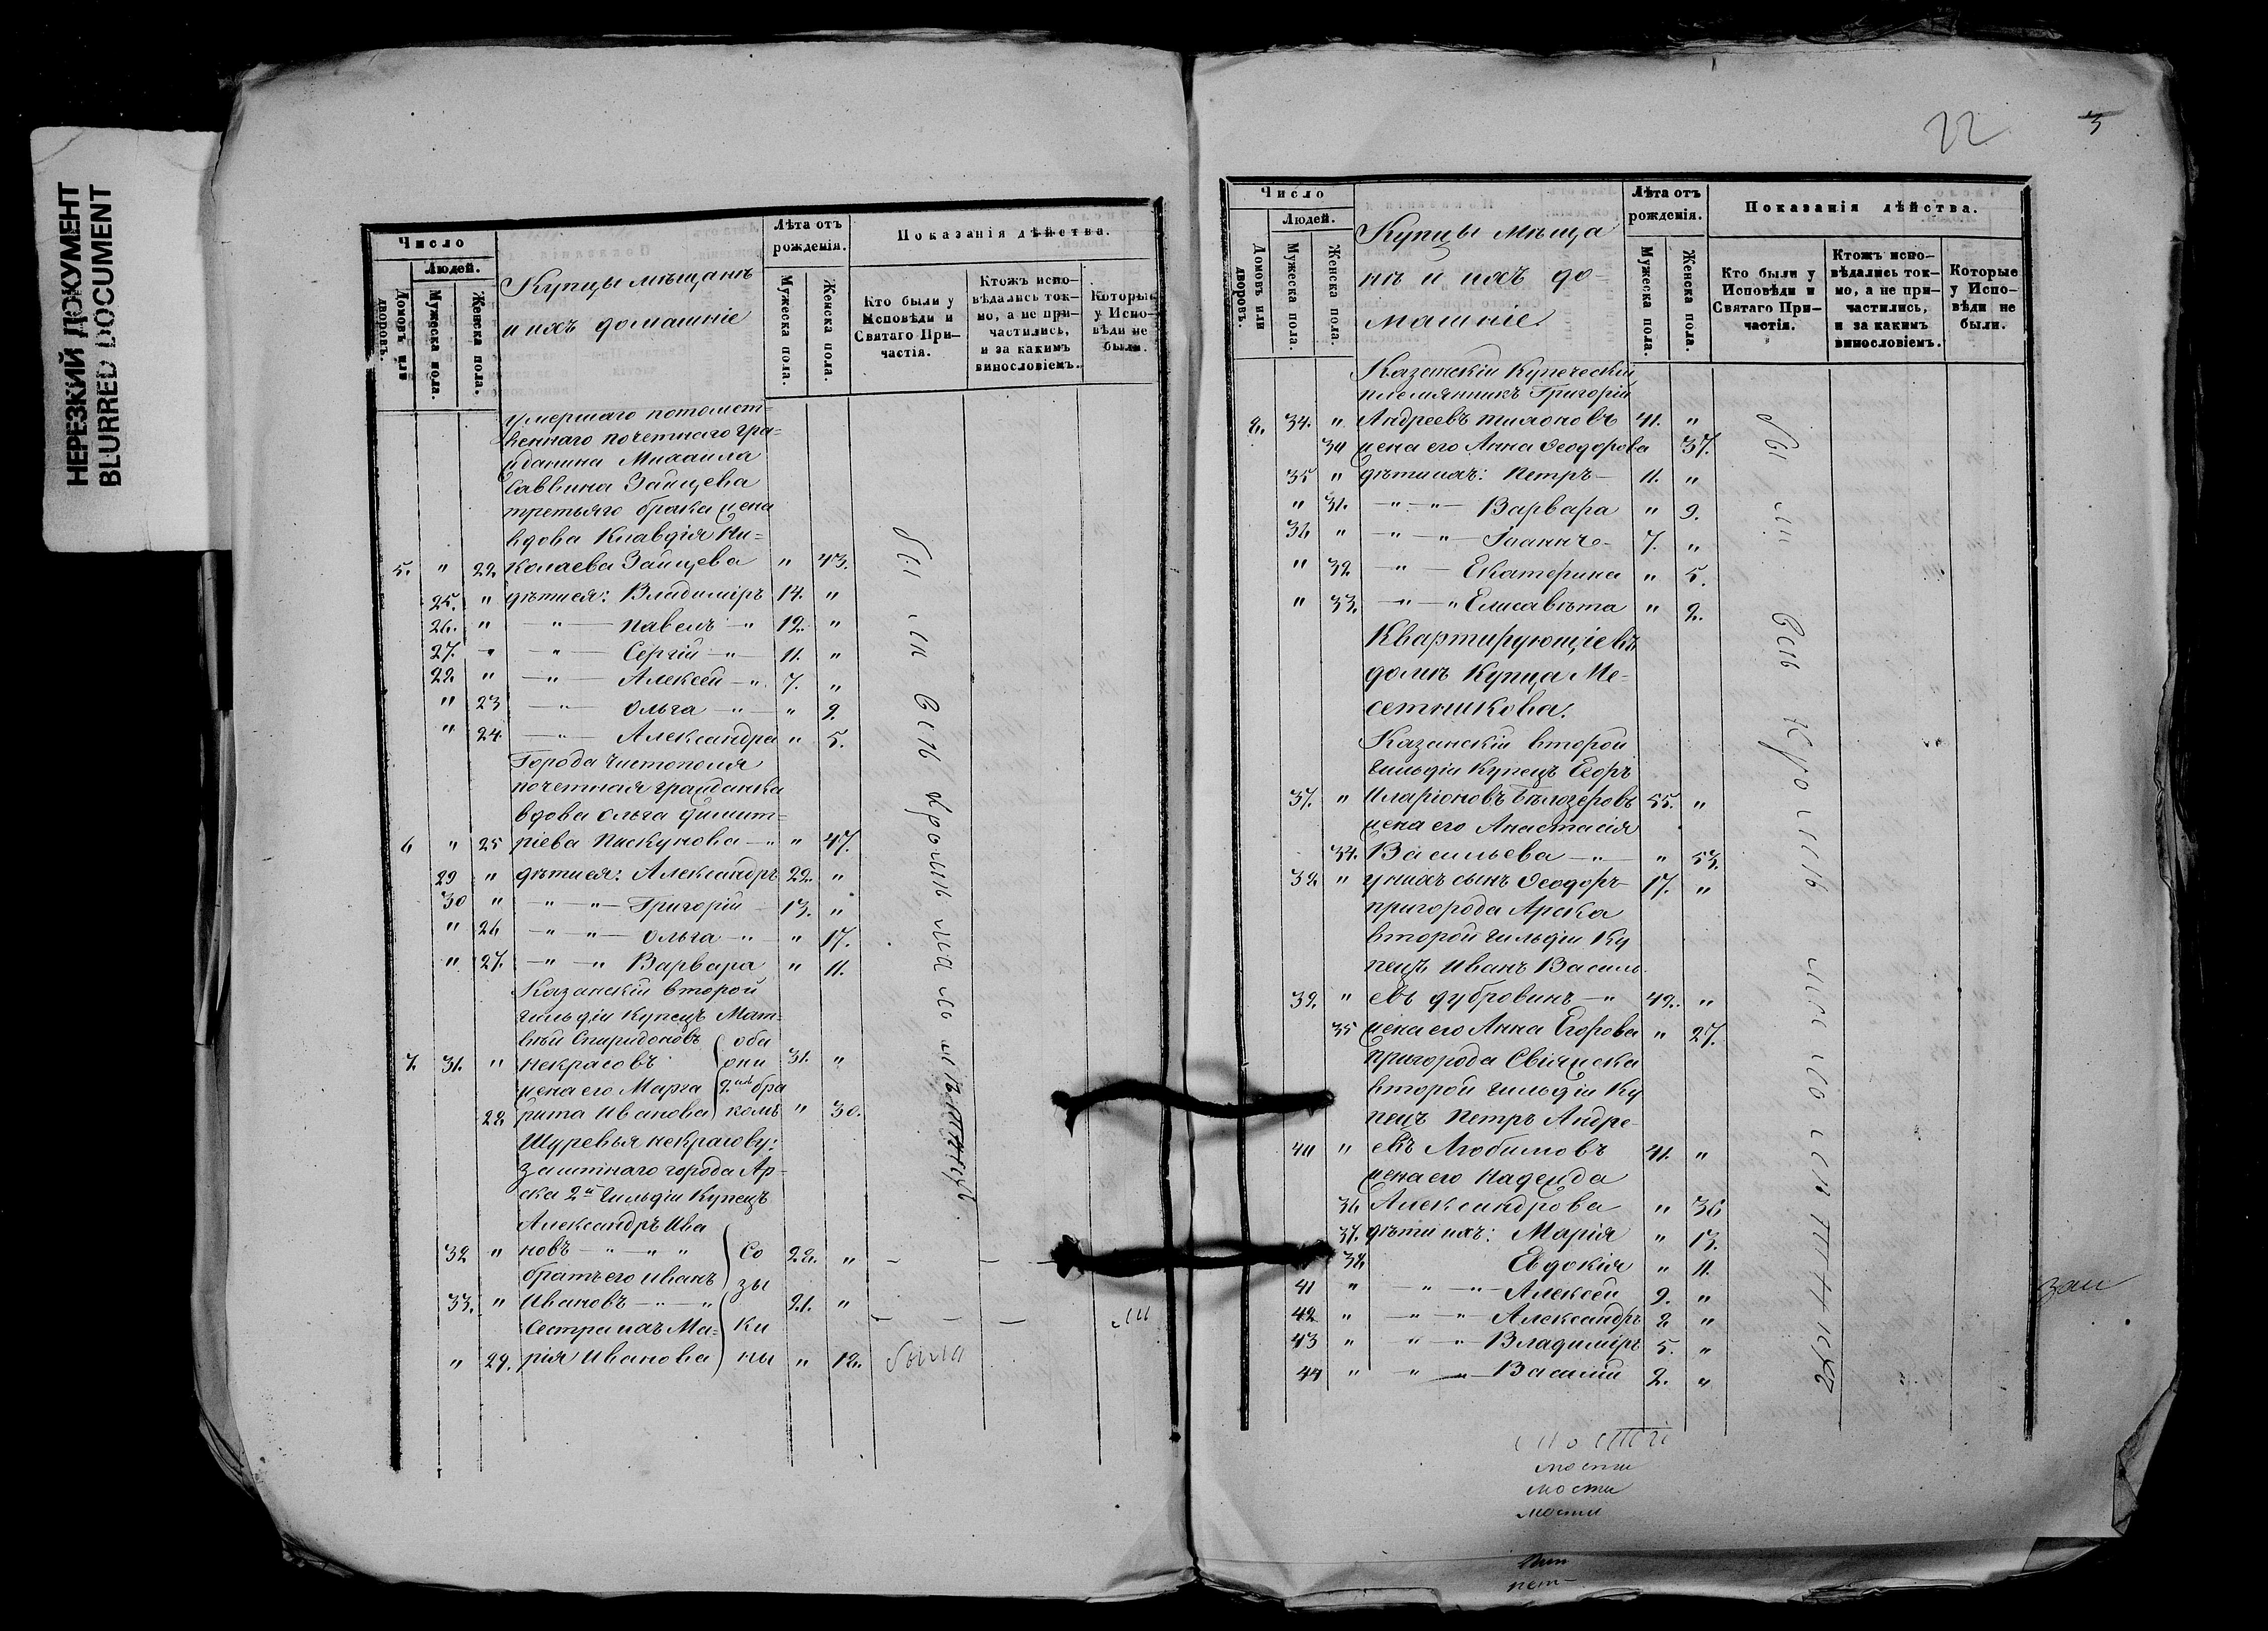 НЕРЕЗКИЙ ДОКУМЕНТ
BLURRED DOCUMENT
Число
Людей.
Домовъ или дворовъ.
Мужеска пола.
Женска пола.
Купцы мѣщанъ
и ихъ домашніе
Лѣта отъ рожденія.
Мужеска пола.
Женска пола.
Показанія дѣйства.
Кто были у Исповѣди и Святаго Причастія.
Ктожъ исповѣдались токмо, а не причастились, и за какимъ винословіемъ.
Которые у Исповѣди не были.
умершаго потомст-
веннаго почетнаго гра-
жданина Михаила
Саввина Зайцева
третьяго брака жена
вдова Клавдія Ни-
5. " 22. колаева Зайцева " 43.
25. " дѣти ея: Владиміръ 14. "
26. " — " — Павелъ — " 12. "
27. " — " — Сергій — " — 11. "
28. " — " — Алексѣй — " 7. "
" 23 — " — Ольга — " — " 9.
" 24. — " — Александра " 5.
Города Чистополя
почетная гражданка
вдова Ольга Димит-
6 " 25 ріева Пискунова — " " 47.
29 " дѣти ея: Александръ 22. "
30 " — " — " — Григорій — 13. "
" 26 — " — " — Ольга — " — " 17.
" 27. — " — " Варвара " 11.
Казанскій второй
гильдіи купецъ Мат-
вѣй Спиридоновъ оба
7. 31. " Некрасовъ они 31. "
жена его Марга 2мъ бра
28. рита Иванова комъ " 30.
Шурья Некрасову:
заштатнаго города Ар-
ска 2й гильдіи купецъ
Александръ Ива
32 " новъ — " — " " Со 22. " — — —
братъ его Иванъ зы
33. " Ивановъ — " — " 21. " — — —
Сестра ихъ Ма- ки
" 29. рія Иванова ны " 18. была
Бы ли Всѣ кромѣ
22
3
Число
Людей.
Домовъ или дворовъ.
Мужеска пола.
Женска пола.
Купцы мѣща
нѣ и ихъ до-
машніе.
Лѣта отъ рожденія.
Мужеска пола.
Женска пола.
Показанія дѣйства.
Кто были у Исповѣди и Святаго Причастія.
Ктожъ исповѣдались токмо, а не причастились, и за какимъ винословіемъ.
Которые у Исповѣди не были.
Казанскій Купеческій
племянникъ Григорій
8. 34. " Андреевъ Тихоновъ 41. "
30 жена его Анна Ѳеодорова 37.
35 " дѣти ихъ: Петръ — 11. "
" 31. — " — " — Варвара " 9.
36 " — " — " — Іоаннъ — 7. "
" 32 — " — Екатерина " 5.
" 33. — " — " Елисавѣта " 2.
Квартирующіе въ
домѣ Купца Ме-
сетникова.
Казанскій второй
гильдіи Купецъ Егоръ
37. " Иларіоновъ Бѣлозеровъ 55. "
жена его Анастасія
34. Васильева — " — " 53.
38. " у нихъ сынъ Ѳеодоръ — 17. "
пригорода Арска
второй гильдіи Ку
пецъ Иванъ Василь
39. " евъ Дубровинъ — " 42. "
35 жена его Анна Егорова " 27.
пригорода Свіяжска
второй гильдіи Ку
пецъ Петръ Андре-
40 " евъ Любимовъ 41. "
жена его Надежда
36 Александрова " 36
37. дѣти ихъ: Марія " 13.
38. Евдокія " 11.
41 " — " — " — Алексѣй 9. "
42 " — " — " Александръ 8 "
43 " " — " — Владиміръ 5. "
44 " " — " — Василій 2. "
Бы ли Всѣ
мости
мости
мости
мости